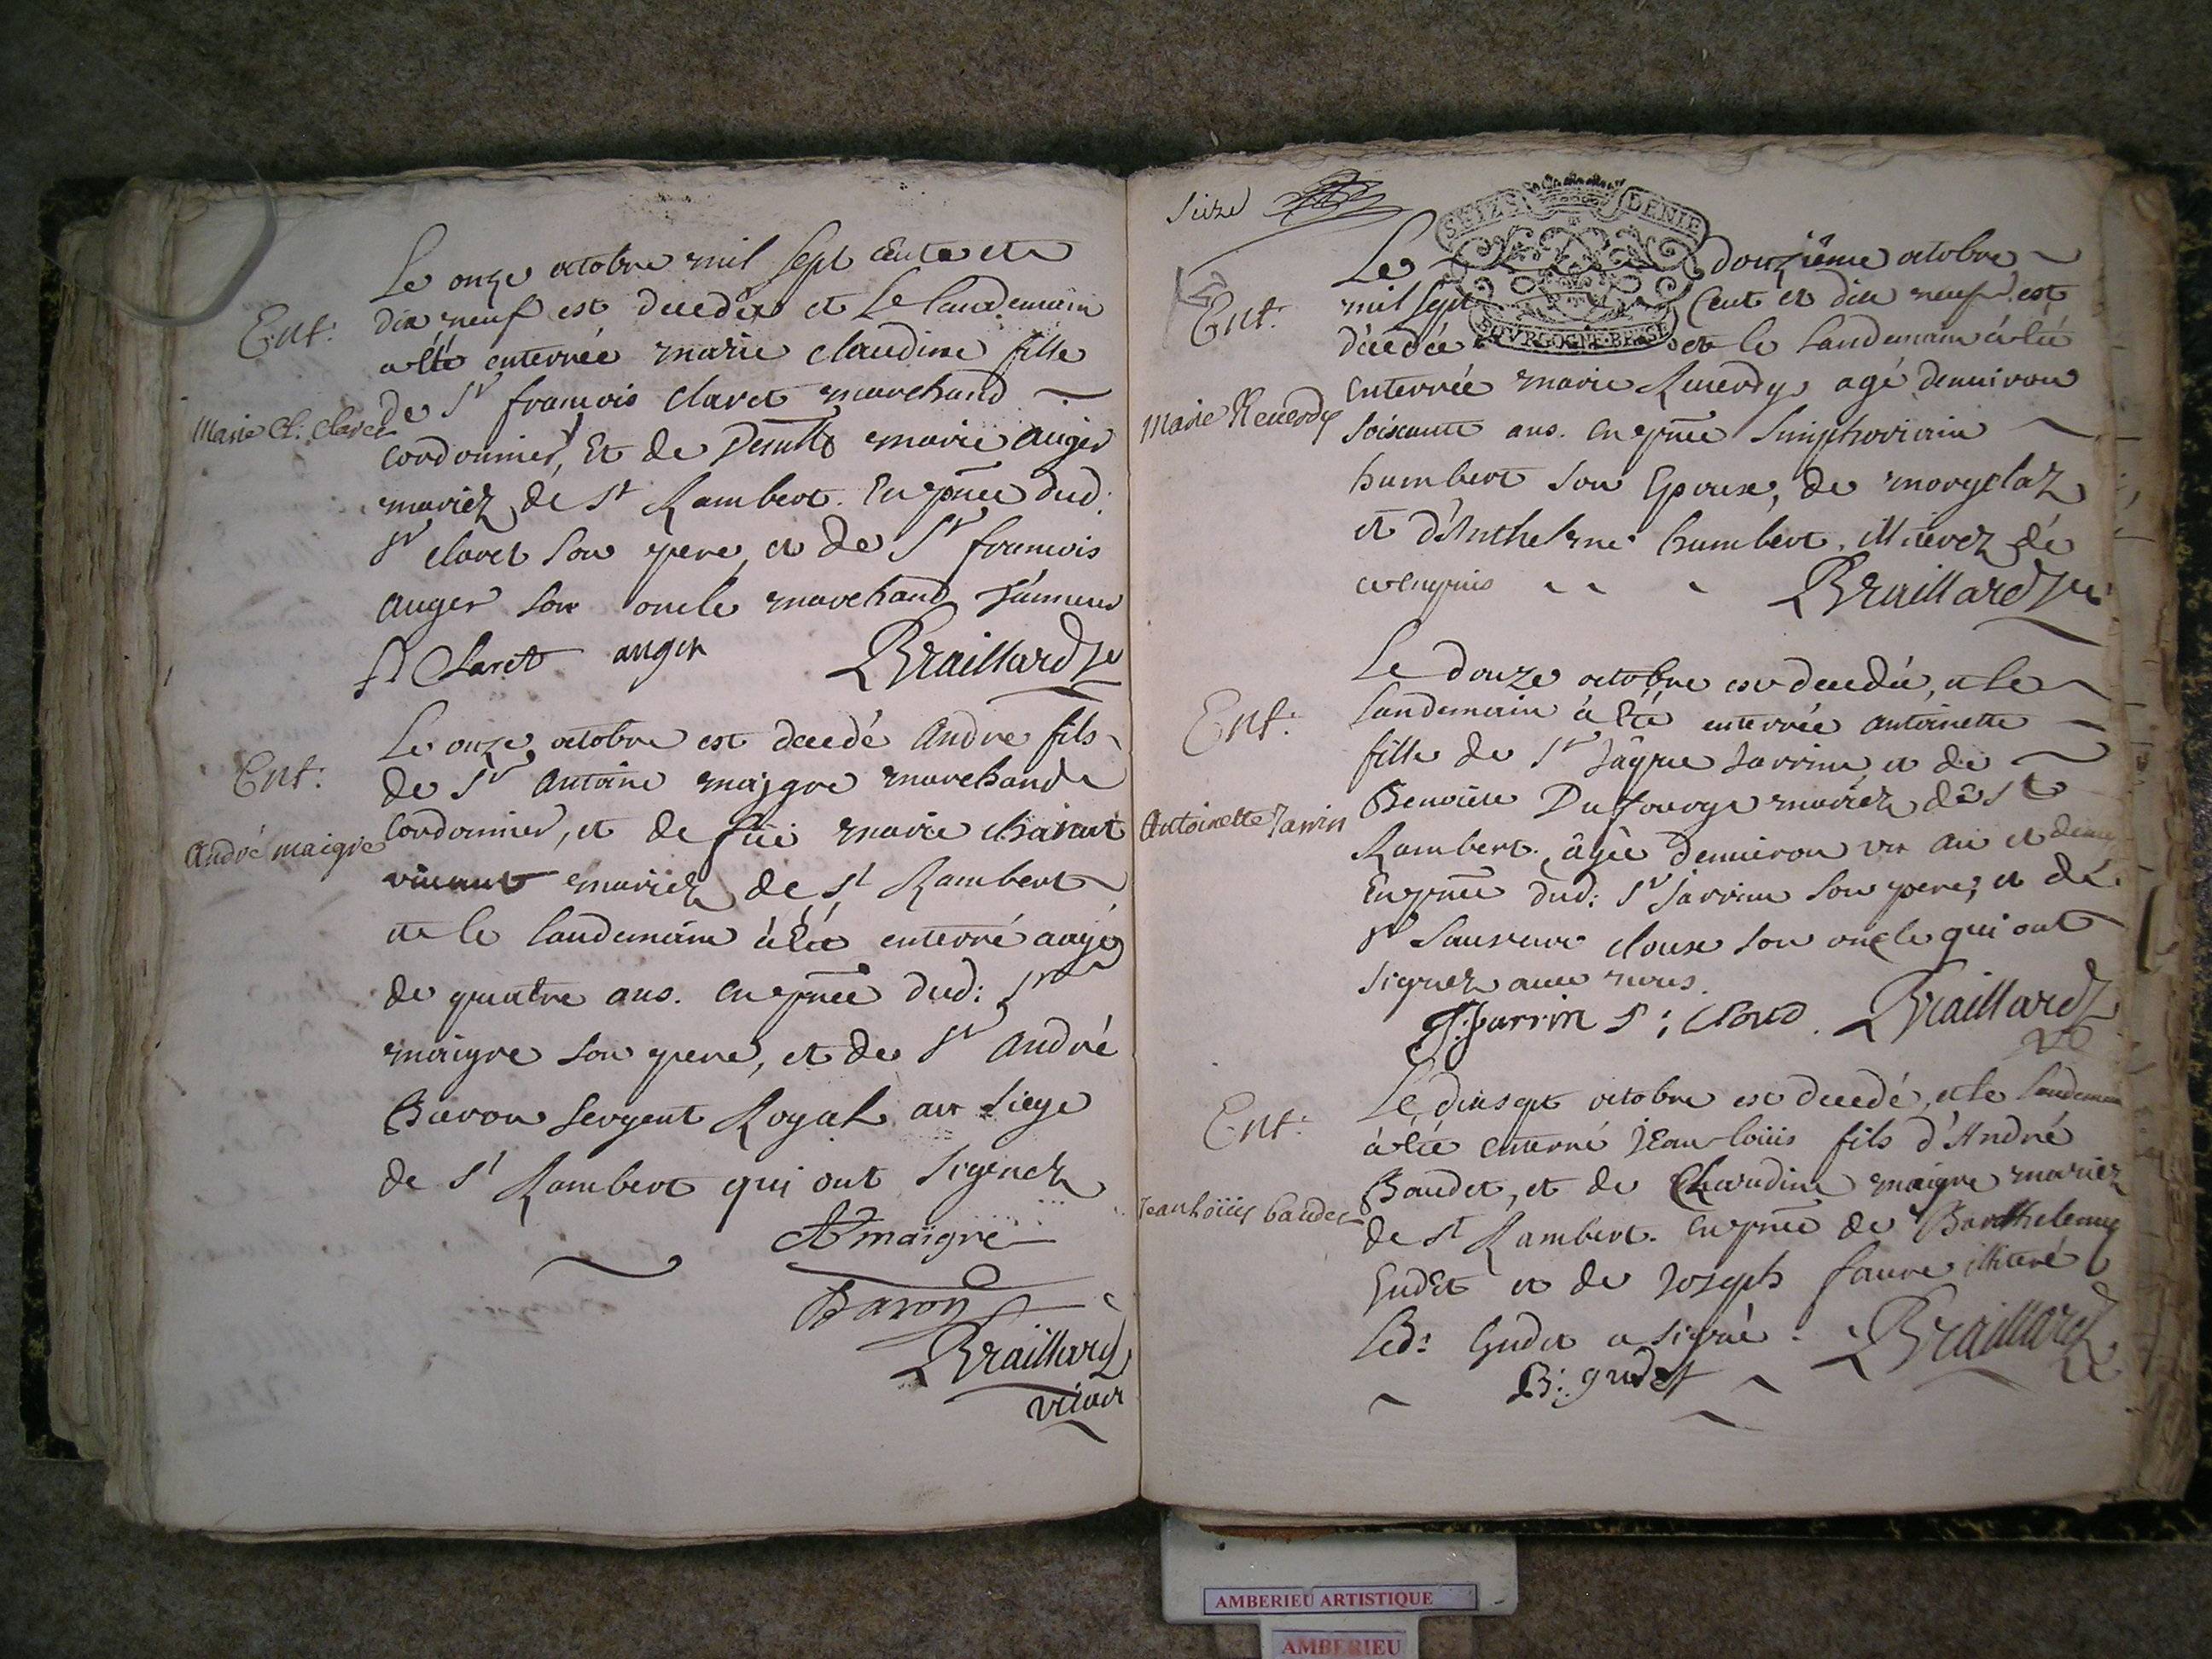 Le onze octobre mil sept cents et
Ent:
dix neuf est decedée et Le landemain
a été enterrée marie claudine fille
de Sr francois claret marchand
Marie Cl: claret
cordonnier, Et de marie auger
mariez de St Rambert. En pnce dud:
Sr claret son pere, et de Sr francois
auger son oncle marchand
fr Claret auger Braillard
Le onze octobre est decedé André fils
Ent:
de Sr Antoine maigre marchand
cordonnier, et de marie
André maigre
vivant mariez de St Rambert
et le landemain à été enterré aagé
de quatre ans. en pnce dud: Sr
maigre son pere, et de Sr André
Baron sergent Royal au siege
de St Rambert qui ont signez
A maigre
Baron
Braillard
vicair
Seize
SEIZE DENIE
BOVRGOGNE·BRESSE
Le douzième octobre
Ent:
mil sept cent et dix neuf est
décedée et le landemain à été
enterrée marie Reuerdy agé denuiron
Marie Reuerdy
soixante ans. en pnce Simphorien
humbert son Epoux, de morgelaz
et d'Anthelme humbert. illiterez de
ce enquis Braillard
Le douze octobre est decedée, et le
Ent:
landemain à été enterrée antoinette
fille de Sr Jâque Jarrin et de
Benoite Dufourge mariez de St
Antoinette Jarrin
Rambert. âgée denuiron un an et demy
En pnce dud: Sr Jarrin son pere, et de
Sr oncle qui ont
signez auec nous.
J: Jarrin S: Braillard
Le dixsept octobre est decedé, et le landemain
Ent:
à été enterré Jean-loüis fils d'André
Baudet, et de Claudine maigre mariez
Jean Loüis baudet
de St Rambert. en pnce de Barthelemy
Gudet et de Joseph faure illiteré
Led: Gudet a signé. Braillard
B: gudet
AMBERIEU ARTISTIQUE
AMBERIEU